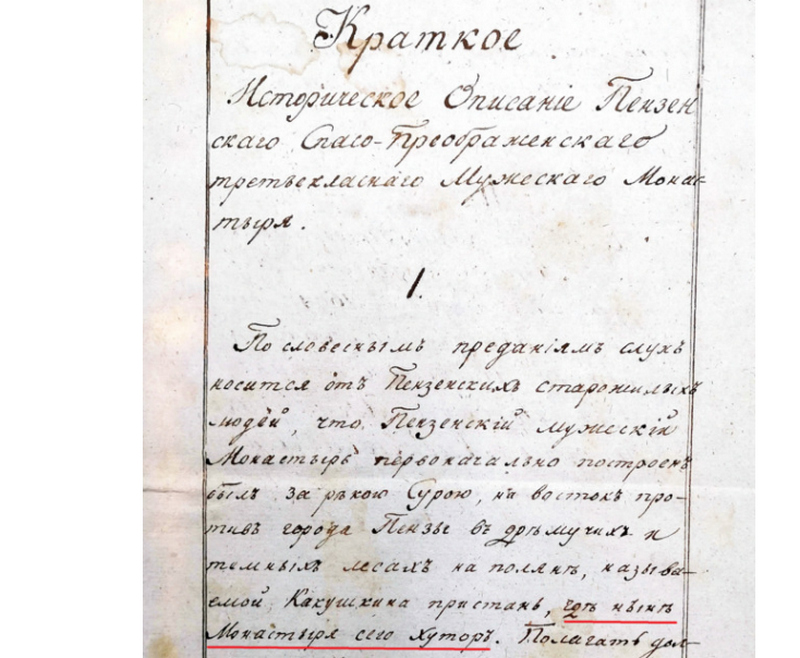 Краткое
Историческое Описаніе Пензен
скаго Спасо-Преображенскаго
третьекласнаго Мужескаго Монас-
тыря.
1.
По словеснымъ преданіямъ слухъ
носится отъ Пензенскихъ старожилыхъ
людей, что Пензенскій мужескій
Монастырь первоначально построенъ
былъ за рѣкою Сурою, на востокъ про-
тивъ города Пензы въ дрѣмучихъ и
темныхъ лесахъ на полянѣ, называ-
емой Какушкина пристань, гдѣ нынѣ
Монастыря сего хуторъ. Полагать дол-